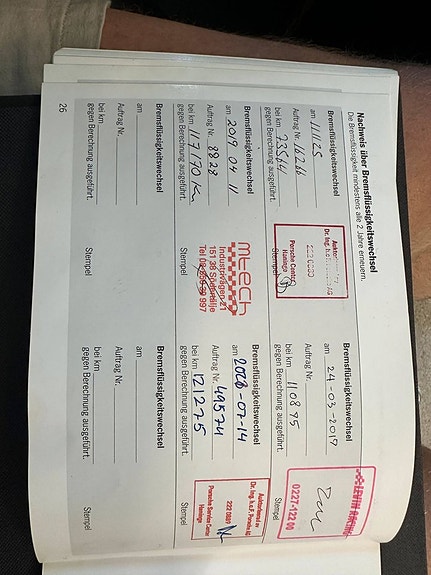 Nachweis über Bremsflüssigkeitswechsel
Die Bremsflüssigkeit mindestens alle 2 Jahre erneuern.
Bremsflüssigkeitswechsel
am 111125
Auftrag Nr.
bei km 73564
gegen Berechnung ausgeführt.
Dr. Ing. h.c.F. Porsche AG
Porsche Center
Haninge
Stempel
Bremsflüssigkeitswechsel
am 24-03-2017
Auftrag Nr.
bei km 110895
gegen Berechnung ausgeführt.
LEVIN RACING
0227-122 00
Stempel
Bremsflüssigkeitswechsel
am 2019 04 11
Auftrag Nr. 8828
bei km 117170 km
gegen Berechnung ausgeführt.
mtech
Industrivägen 21
151 38 Södertälje
Tel 997
Stempel
Bremsflüssigkeitswechsel
am 2020-07-14
Auftrag Nr. 49574
bei km 121275
gegen Berechnung ausgeführt.
Auktoriserad av
Dr. Ing. h.c.F. Porsche AG
222 0889
Porsche Service Center
Haninge
Stempel
Bremsflüssigkeitswechsel
am
Auftrag Nr.
bei km
gegen Berechnung ausgeführt.
Stempel
Bremsflüssigkeitswechsel
am
Auftrag Nr.
bei km
gegen Berechnung ausgeführt.
Stempel
26